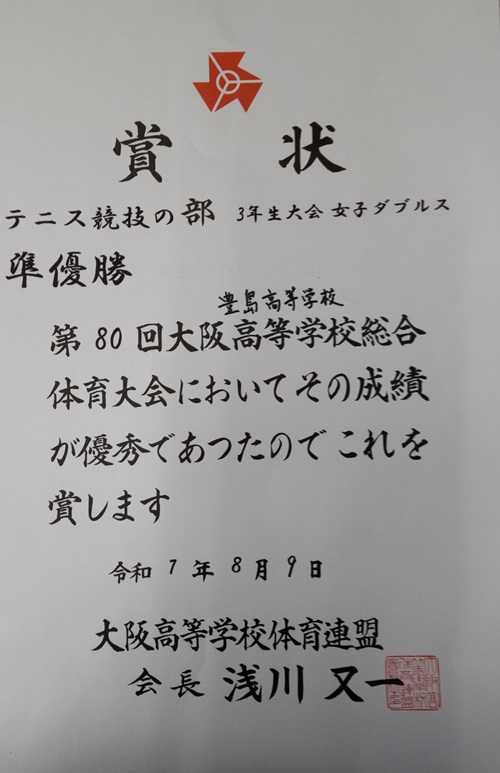 賞 状
テニス競技の部 3年生大会 女子ダブルス
準優勝
豊島高等学校
第80回大阪高等学校総合
体育大会においてその成績
が優秀であつたのでこれを
賞します
令和7年8月9日
大阪高等学校体育連盟
会長 浅川 又一